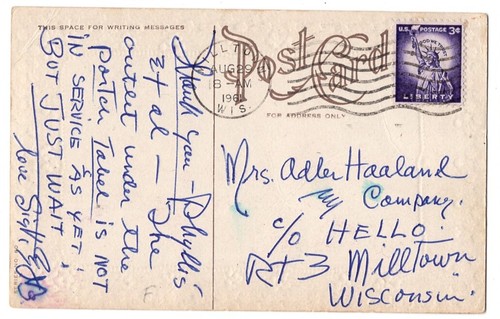 THIS SPACE FOR WRITING MESSAGES
Thank you - Phyllis
et al - The
outlet under the
Porta Tabel is NOT
IN SERVICE AS YET!
BUT JUST WAIT!
love
Post Card
FOR ADDRESS ONLY
AUG 29
8 - AM
WIS.
U.S. POSTAGE 3¢
IN GOD WE TRUST
LIBERTY
Mrs. Adler Haaland
my
Company.
c/o HELLO.
Rt 3 Milltown
Wisconsin
F